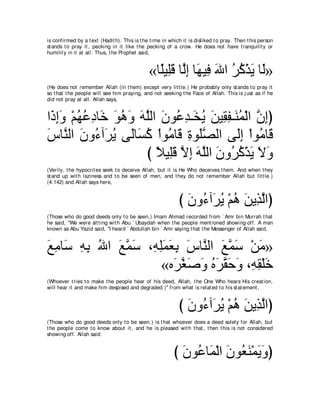 is confirmed by a text (Hadith). This is the time in which it is disliked to pray. Then this person
stands to pray it, pecking in it like the pecking of a crow. He does not have tranquility or
humility in it at all. Thus, the Prophet said,
«لَا يَذْكُرُ اللهَ فِيهَا إِلَّا قَلِيلًا»
(He does not remember Allah (in them) except very little.) He probably only stands to pray it
so that the people will see him praying, and not seeking the Face of Allah. This is just as if he
did not pray at all. Allah says,
إِنَّ الْمُنَـفِقِينَ يُخَـدِعُونَ اللَّهَ وَهُوَ خَادِعُهُمْ وَإِذَا
قَامُواْ إِلَى الصَّلَوةِ قَامُواْ كُسَالَى يُرَآءُونَ النَّاسَ
وَلاَ يَذْكُرُونَ اللَّهَ إِلاَّ قَلِيلاً )
(Verily, the hypocrites seek to deceive Allah, but it is He Who deceives them. And when they
stand up with laziness and to be seen of men, and they do not remember Allah but little.)
(4:142) and Allah says here,
(الَّذِينَ هُمْ يُرَآءُونَ )
(Those who do good deeds only to be seen,) Imam Ahmad recorded from `Amr bin Murrah that
he said, "We were sitting with Abu `Ubaydah when the people mentioned showing-off. A man
known as Abu Yazid said, "I heard `Abdullah bin `Amr saying that the Messenger of Allah said,
«مَنْ سَمَّعَ النَّاسَ بِعَمَلِهِ، سَمَّعَ اللهُ بِهِ سَامِعَ
خَلْقِهِ، وَحَقَّرَهُ وَصَغَّرَه»
(Whoever tries to make the people hear of his deed, Allah, the One Who hears His creation,
will hear it and make him despised and degraded.)" from what is related to his statement,
(الَّذِينَ هُمْ يُرَآءُونَ )
(Those who do good deeds only to be seen.) is that whoever does a deed solely for Allah, but
the people come to know about it, and he is pleased with that, then this is not considered
showing off. Allah said:
(وَيَمْنَعُونَ الْمَاعُونَ )